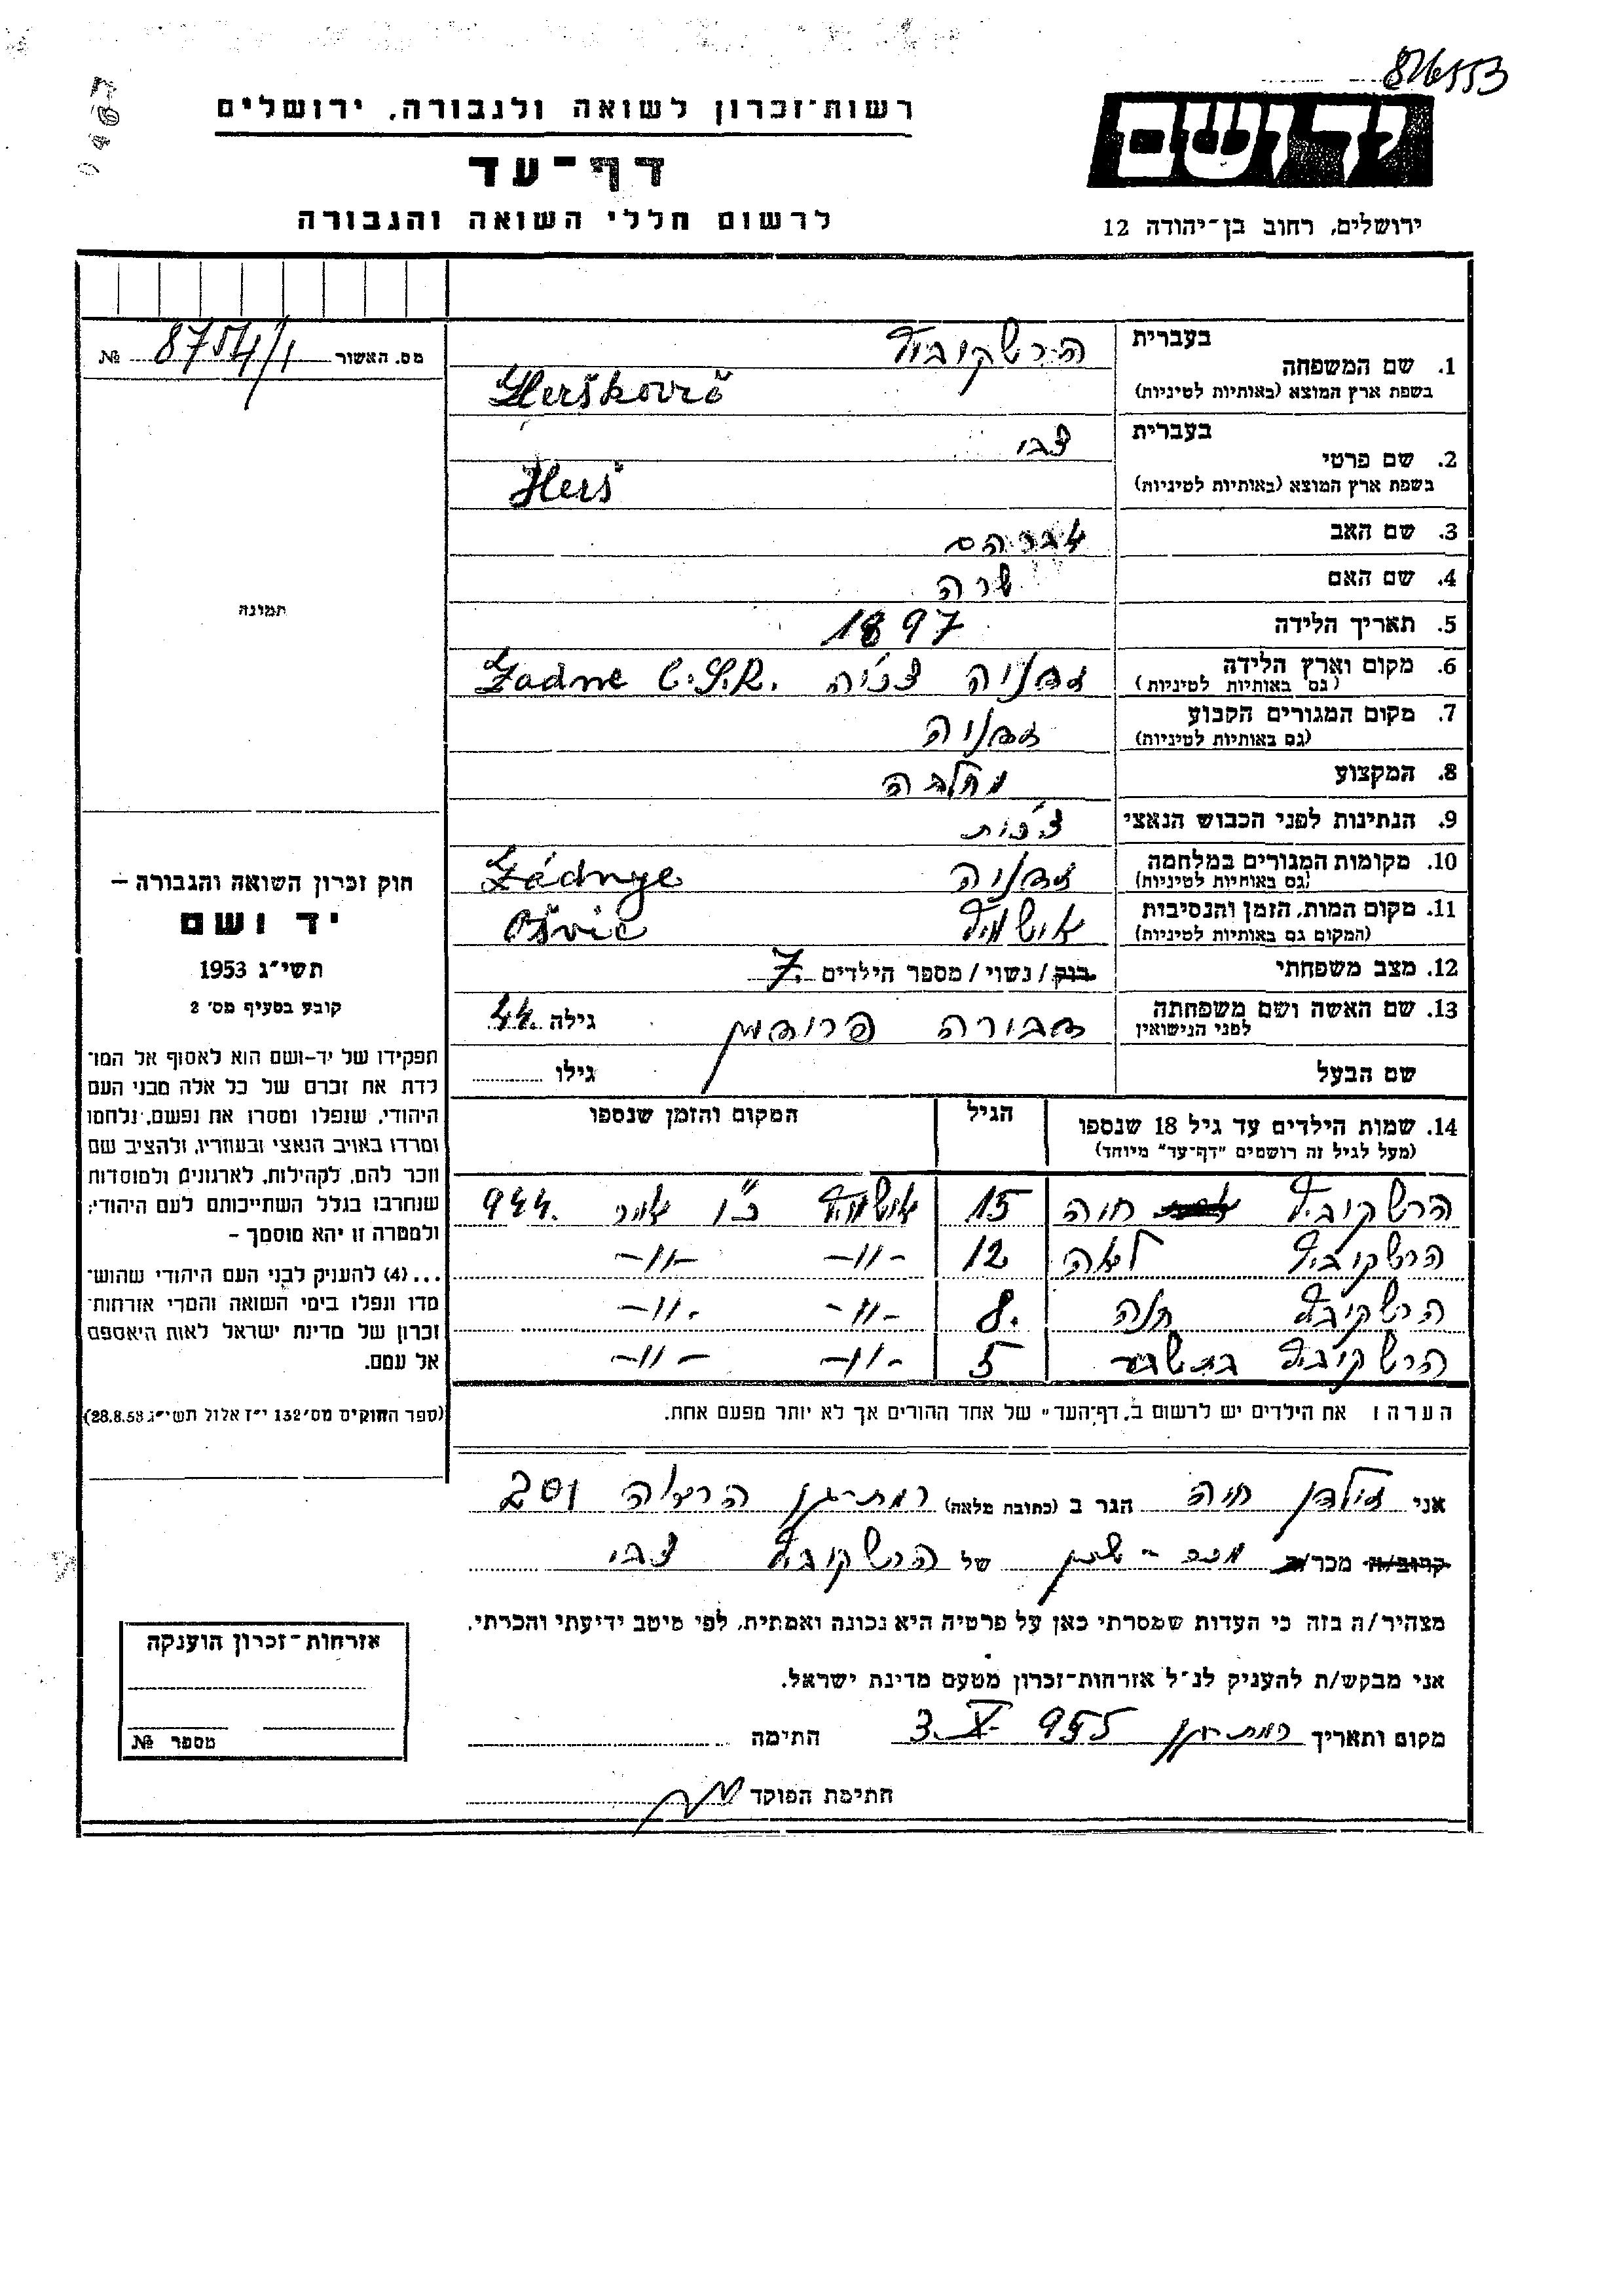 826553
0467
רשות־זכרון לשואה ולגבורה, ירושלים
דף־עד
לרשום חללי השואה והגבורה
ידושם
ירושלים, רחוב בן־יהודה 12
מס. האשור 8754/1 №
1. שם המשפחה בעברית הרשקוביץ
בשפת ארץ המוצא (באותיות לטיניות) Herškovič
2. שם פרטי בעברית צבי
בשפת ארץ המוצא (באותיות לטיניות) Herš
3. שם האב אברהם
4. שם האם שרה
5. תאריך הלידה 1897
6. מקום וארץ הלידה זדניה צ'כיה Zadne C.S.R.
(גם באותיות לטיניות)
7. מקום המגורים הקבוע זדניה
(גם באותיות לטיניות)
8. המקצוע
9. הנתינות לפני הכבוש הנאצי צ'כית
10. מקומות המגורים במלחמה זדניה Zádnye
(גם באותיות לטיניות)
11. מקום המות, הזמן והנסיבות אושויץ Ošvic
(המקום גם באותיות לטיניות)
12. מצב משפחתי רוק / נשוי / מספר הילדים 7.
13. שם האשה ושם משפחתה דבורה פרידמן גילה 44.
לפני הנישואין
שם הבעל גילו
14. שמות הילדים עד גיל 18 שנספו הגיל המקום והזמן שנספו
(מעל לגיל זה רושמים "דף־עד" מיוחד)
הרשקוביץ חוה 15 אושויץ כ"ו אייר 944.
הרשקוביץ לאה 12 -"- -"-
הרשקוביץ חנה 8. -"- -"-
הרשקוביץ בתשבע 5 -"- -"-
הערה: את הילדים יש לרשום ב„דף־העד" של אחד ההורים אך לא יותר מפעם אחת.
תמונה
חוק זכרון השואה והגבורה –
יד ושם
תשי״ג 1953
קובע בסעיף מס׳ 2
תפקידו של יד–ושם הוא לאסוף אל המו־
לדת את זכרם של כל אלה מבני העם
היהודי, שנפלו ומסרו את נפשם, נלחמו
ומרדו באויב הנאצי ובעוזריו, ולהציב שם
וזכר להם, לקהילות, לארגונים ולמוסדות
שנחרבו בגלל השתייכותם לעם היהודי;
ולמטרה זו יהא מוסמך –
...(4) להעניק לבני העם היהודי שהוש־
מדו ונפלו בימי השואה והמרי אזרחות־
זכרון של מדינת ישראל לאות היאספם
אל עמם.
(ספר החוקים מס׳ 132 י״ז אלול תשי״ג 28.8.53)
אני זילדן חוה הגר ב (כתובת מלאה) רמת-גן הרצליה 201
קרוב/ה מכר/ה מכר - שכן של הרשקוביץ צבי
מצהיר/ה בזה כי העדות שמסרתי כאן על פרטיה היא נכונה ואמתית, לפי מיטב ידיעתי והכרתי.
אני מבקש/ת להעניק לנ״ל אזרחות־זכרון מטעם מדינת ישראל.
מקום ותאריך רמת-גן 3.V.955 חתימה
חתימת הפוקד
אזרחות־זכרון הוענקה
מספר №